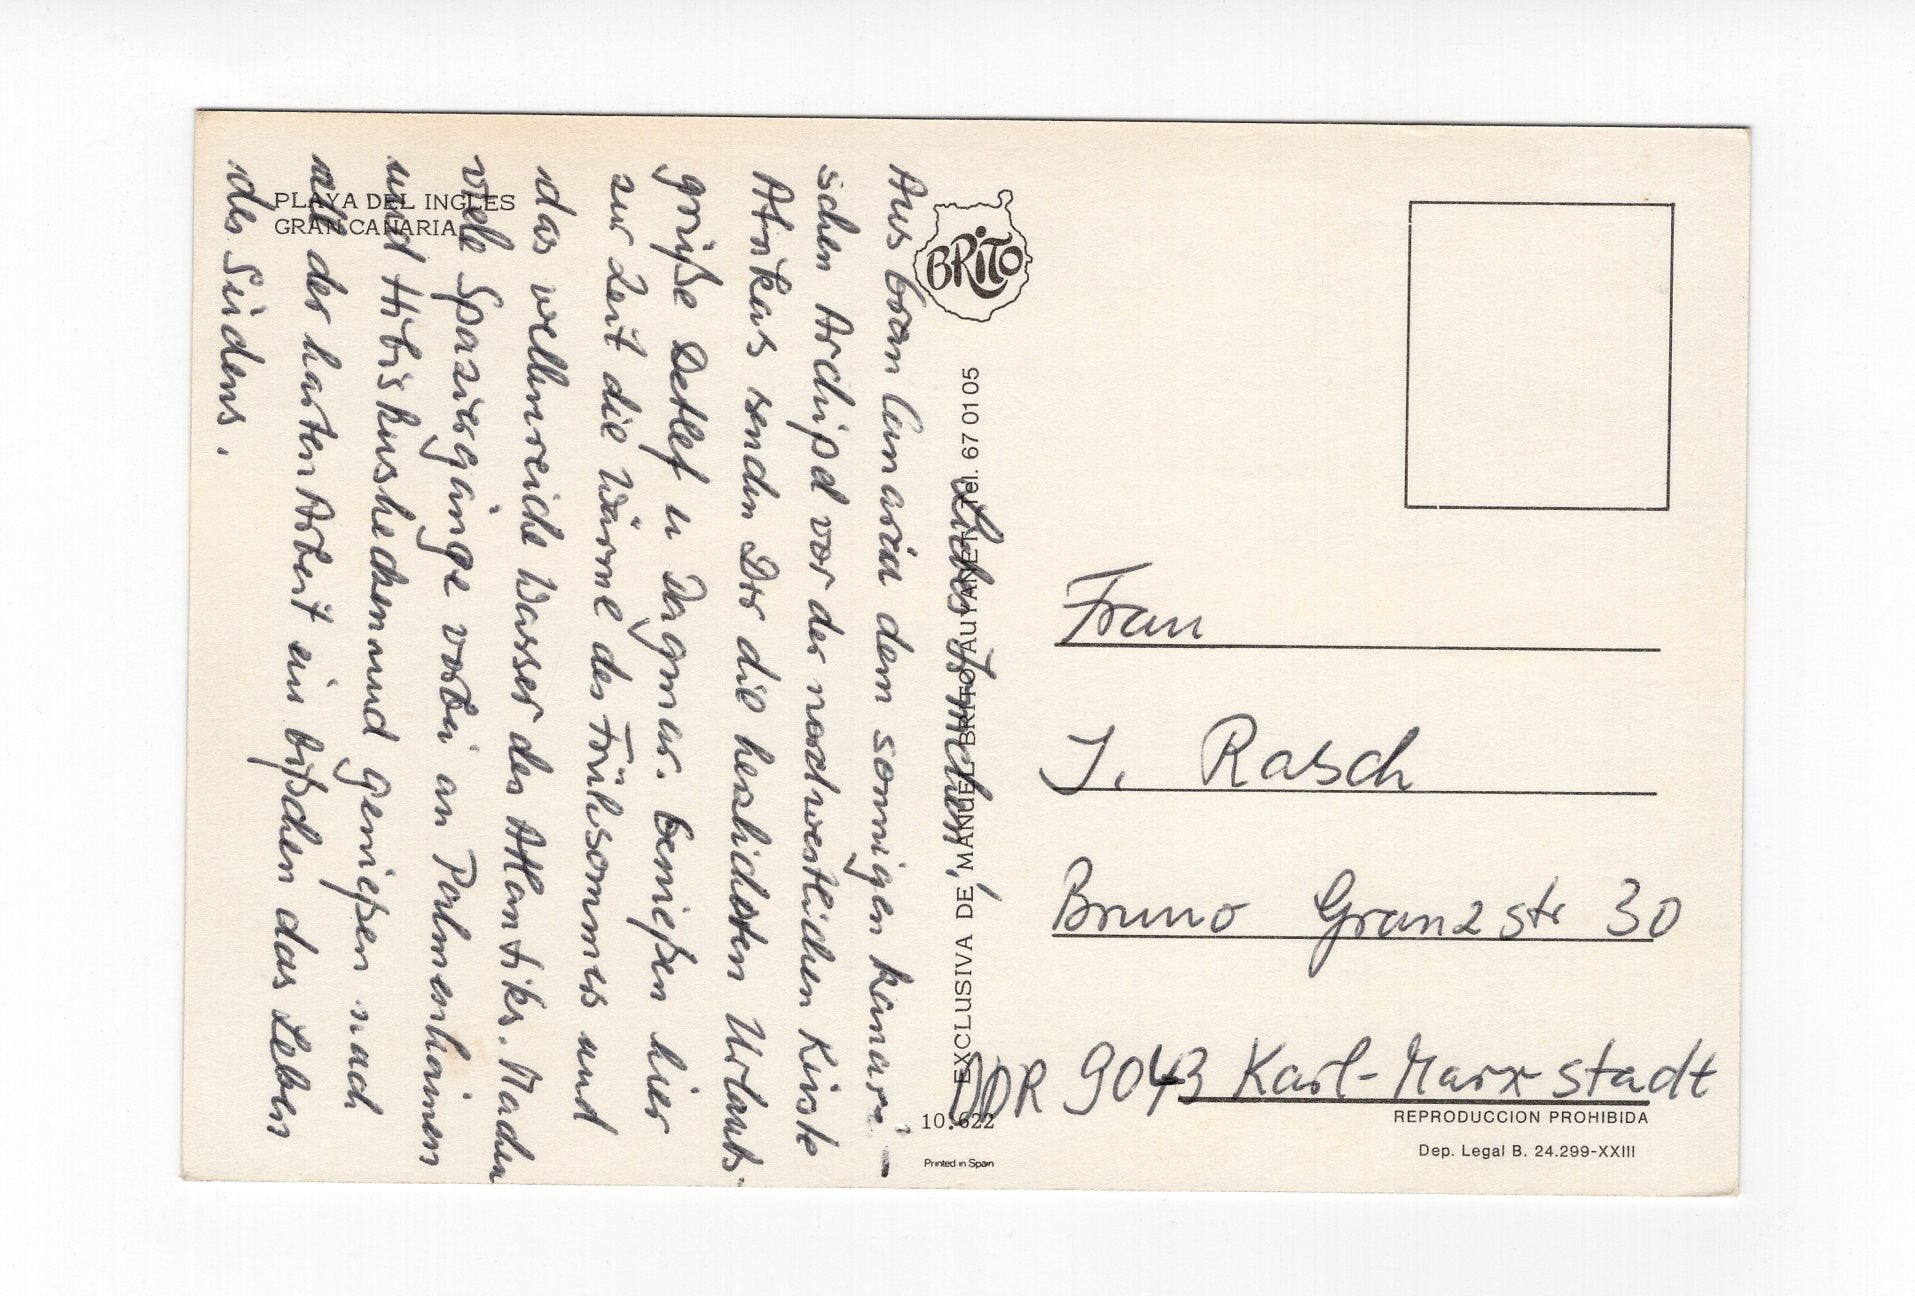 PLAYA DEL INGLES
GRAN CANARIA
BRITO
EXCLUSIVA DE MANUEL BRITO AUYANET, Tel. 67 01 05
10.622
Printed in Spain
Liebes Irmchen,
Aus Gran Canaria dem sonnigen kanari-
schen Archipel vor der nordwestlichen Küste
Afrikas senden Dir die herzlichsten Urlaubs-
grüße Detlef u Dagmar. Genießen hier
zur Zeit die Wärme des Frühsommers und
das wellenreiche Wasser des Atlantiks. Machen
viele Spaziergänge vorbei an Palmenhainen
und Hibiskushecken und genießen nach
all der harten Arbeit ein bißchen das Leben
des Südens.
Frau
I. Rasch
Bruno Granz str 30
DDR 9043 Karl-Marx stadt
REPRODUCCION PROHIBIDA
Dep. Legal B. 24.299-XXIII